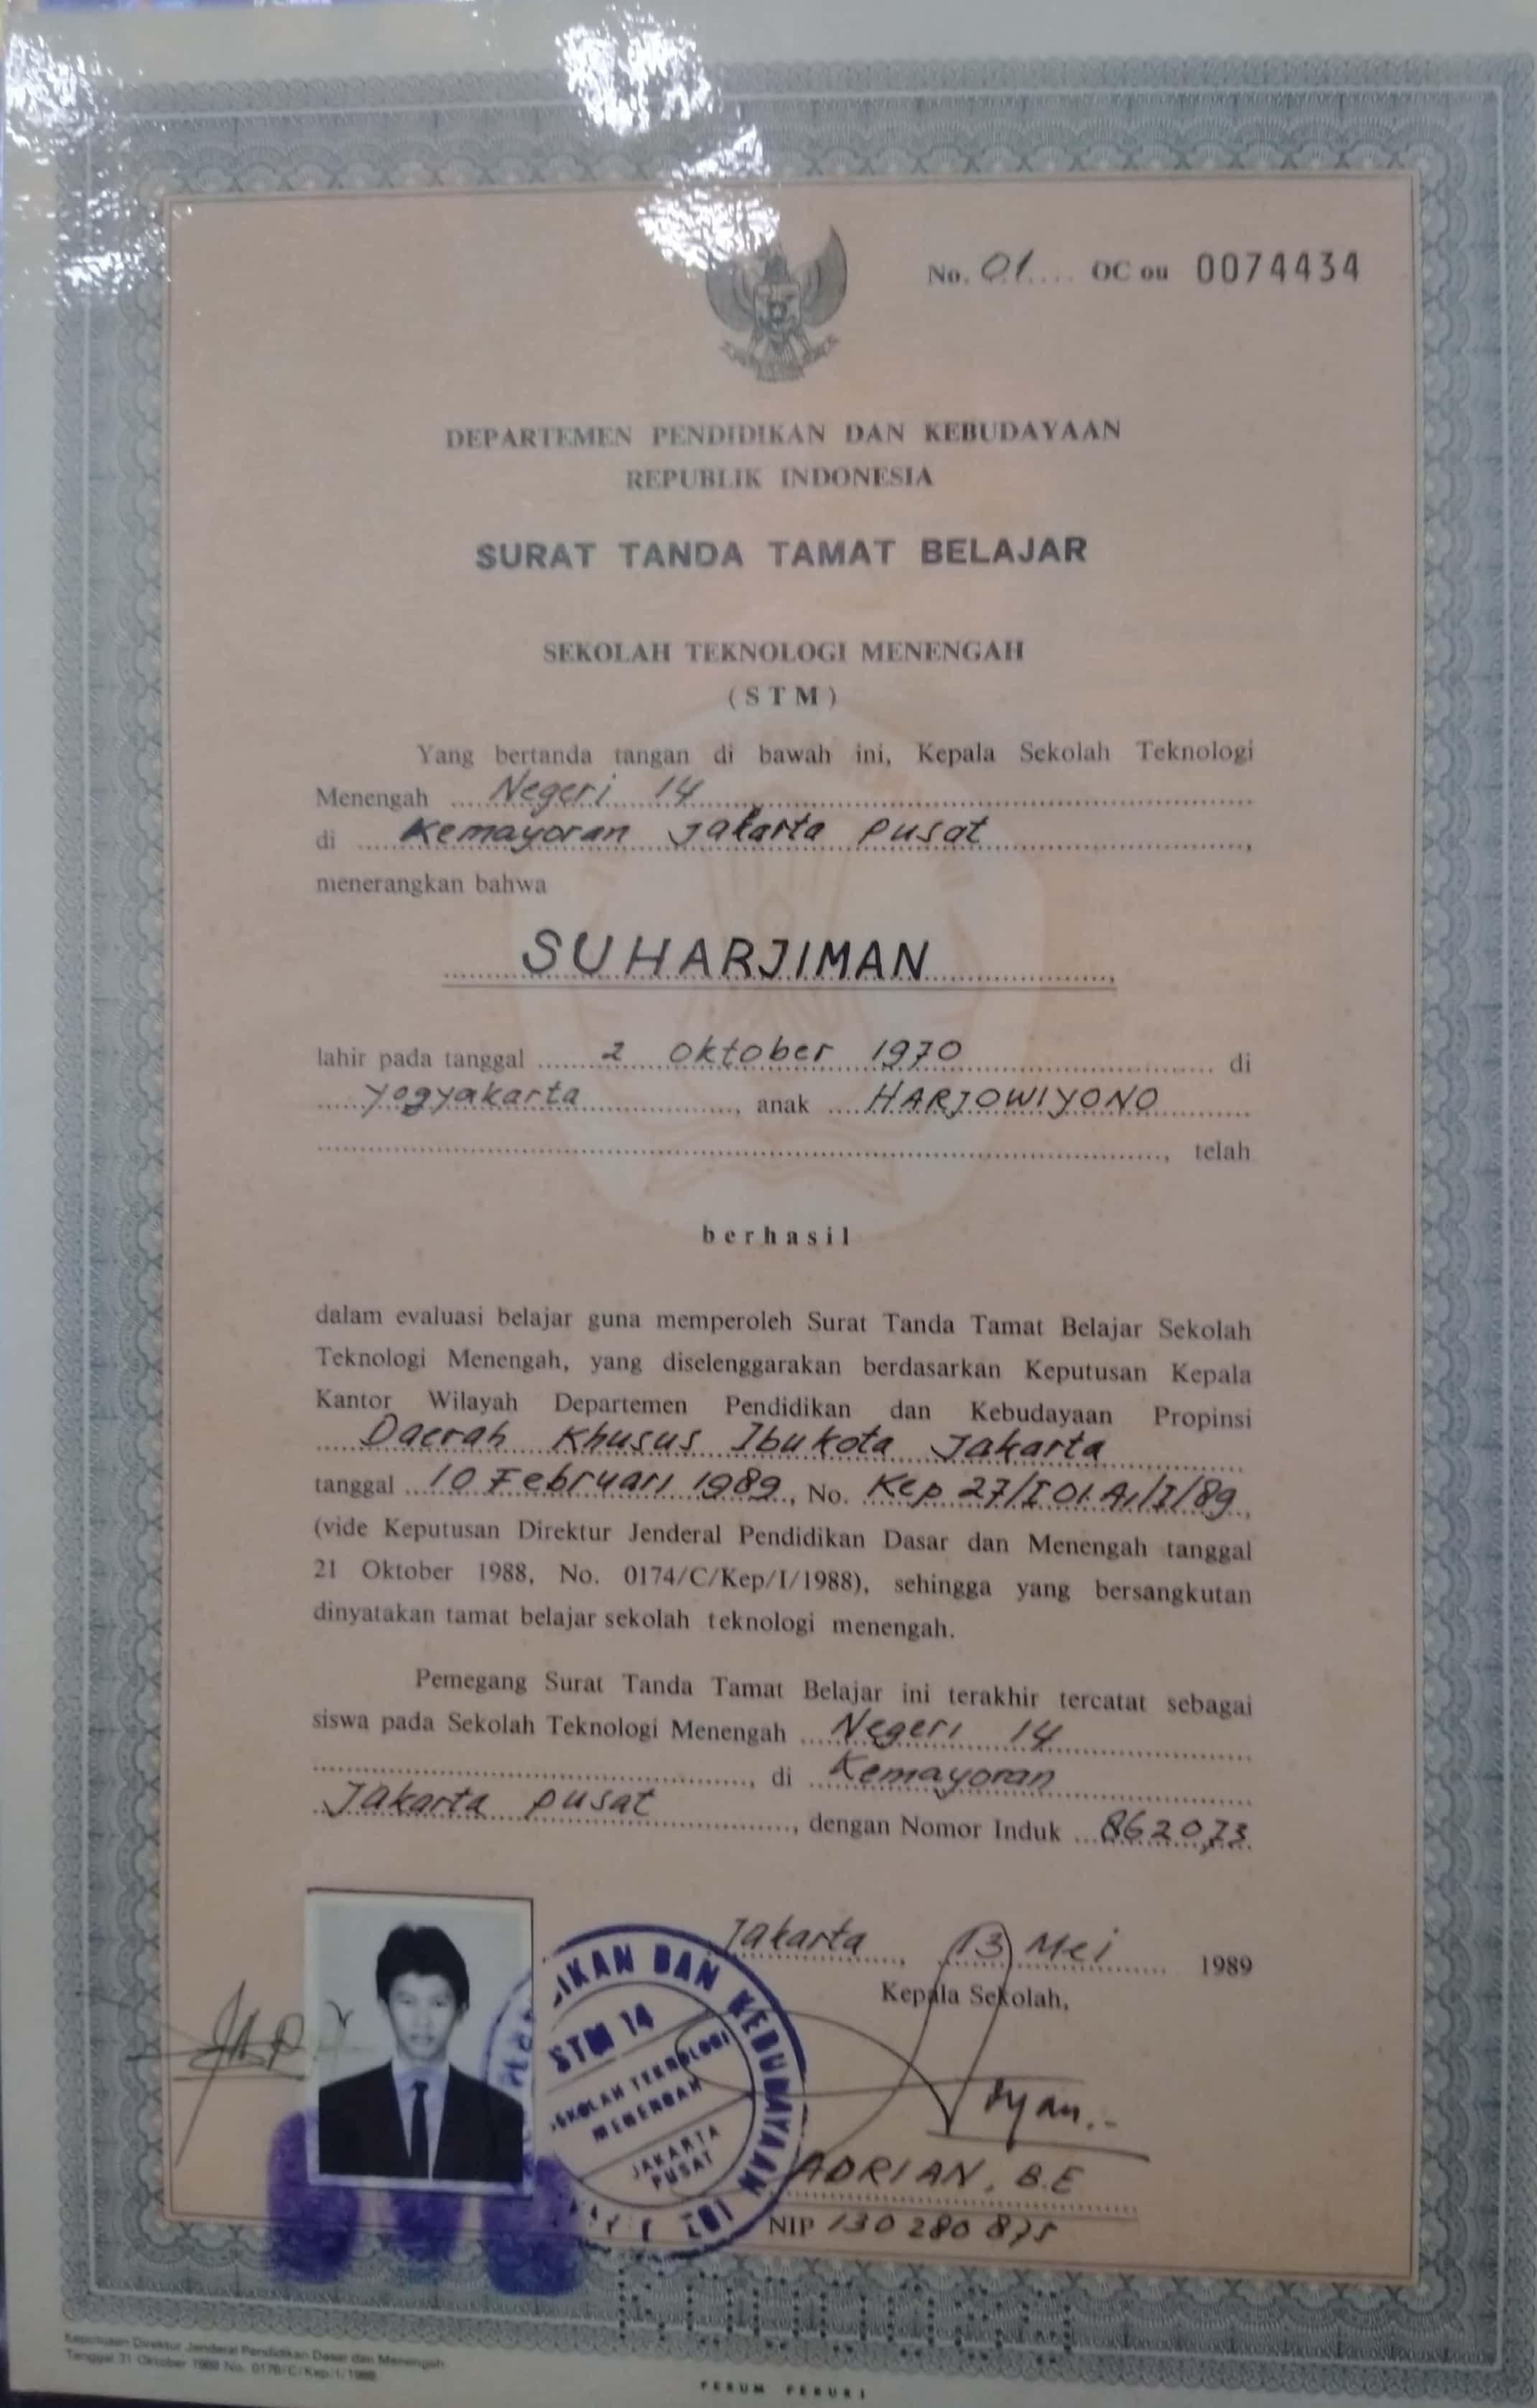 No. 01 OC ou 0074434
DEPARTEMEN PENDIDIKAN DAN KEBUDAYAAN
REPUBLIK INDONESIA
SURAT TANDA TAMAT BELAJAR
SEKOLAH TEKNOLOGI MENENGAH
(STM)
Yang bertanda tangan di bawah ini, Kepala Sekolah Teknologi
Menengah Negeri 14
di Kemayoran Jakarta Pusat,
menerangkan bahwa
SUHARJIMAN,
lahir pada tanggal 2 Oktober 1970 di
Yogyakarta, anak HARJOWIYONO
, telah
berhasil
dalam evaluasi belajar guna memperoleh Surat Tanda Tamat Belajar Sekolah
Teknologi Menengah, yang diselenggarakan berdasarkan Keputusan Kepala
Kantor Wilayah Departemen Pendidikan dan Kebudayaan Propinsi
Daerah Khusus Ibukota Jakarta
tanggal 10 Februari 1989, No. Kep 27/I01.A1/I/89,
(vide Keputusan Direktur Jenderal Pendidikan Dasar dan Menengah tanggal
21 Oktober 1988, No. 0174/C/Kep/I/1988), sehingga yang bersangkutan
dinyatakan tamat belajar sekolah teknologi menengah.
Pemegang Surat Tanda Tamat Belajar ini terakhir tercatat sebagai
siswa pada Sekolah Teknologi Menengah Negeri 14
, di Kemayoran
Jakarta Pusat, dengan Nomor Induk 862073
Jakarta, 13 Mei 1989
Kepala Sekolah,
DIKAN DAN KEBUDAYAAN
STM 14
SEKOLAH TEKNOLOGI
MENENGAH
JAKARTA
PUSAT
ADRIAN, B.E
NIP 130 280 875
Keputusan Direktur Jenderal Pendidikan Dasar dan Menengah
Tanggal 21 Oktober 1988 No. 0174/C/Kep/I/1988
PERUM PERURI